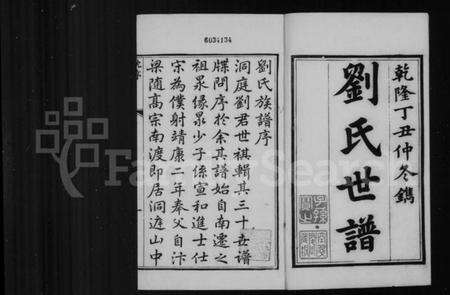 6034134
乾隆丁丑仲冬鐫
劉氏世譜
劉氏族譜序
洞庭劉君世祺輯其三十世譜
牒問序於余其譜始自南遷之
祖杲緣杲少子係宣和進士仕
宋為僕射靖康二年奉父自汴
梁隨髙宗南渡即居洞庭山中